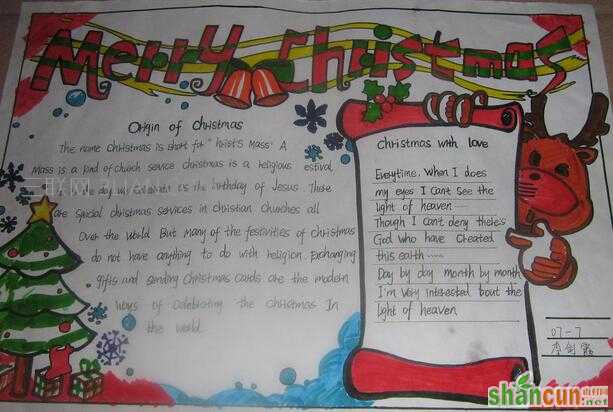 Merry Christmas
Origin of Christmas
The name Christmas is short for "hrist's Mass" A
Mass is a kind of church service christmas is a religious estival
day the birthday of Jesus There
are special christmas services in christian churches all
Over the world But many of the festivities of christmas
do not have anything to do with religion Exchanging
gifts and sending Christmas cards are the modern
ways of celebrating the Christmas In
the world
Christmas with love
Everytime, When I does
my eyes I can't see the
light of heaven
Though I can't deny there's
God who have Created
this earth ......
Day by day month by month
I'm very interested bout the
light of heaven
07-7
李剑
shancun
.net